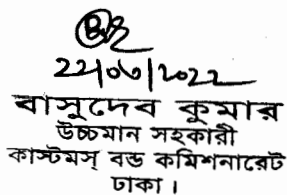 ২২/০৬/২০২২
বাসুদেব কুমার
উচ্চমান সহকারী
কাস্টমস্ বন্ড কমিশনারেট
ঢাকা।